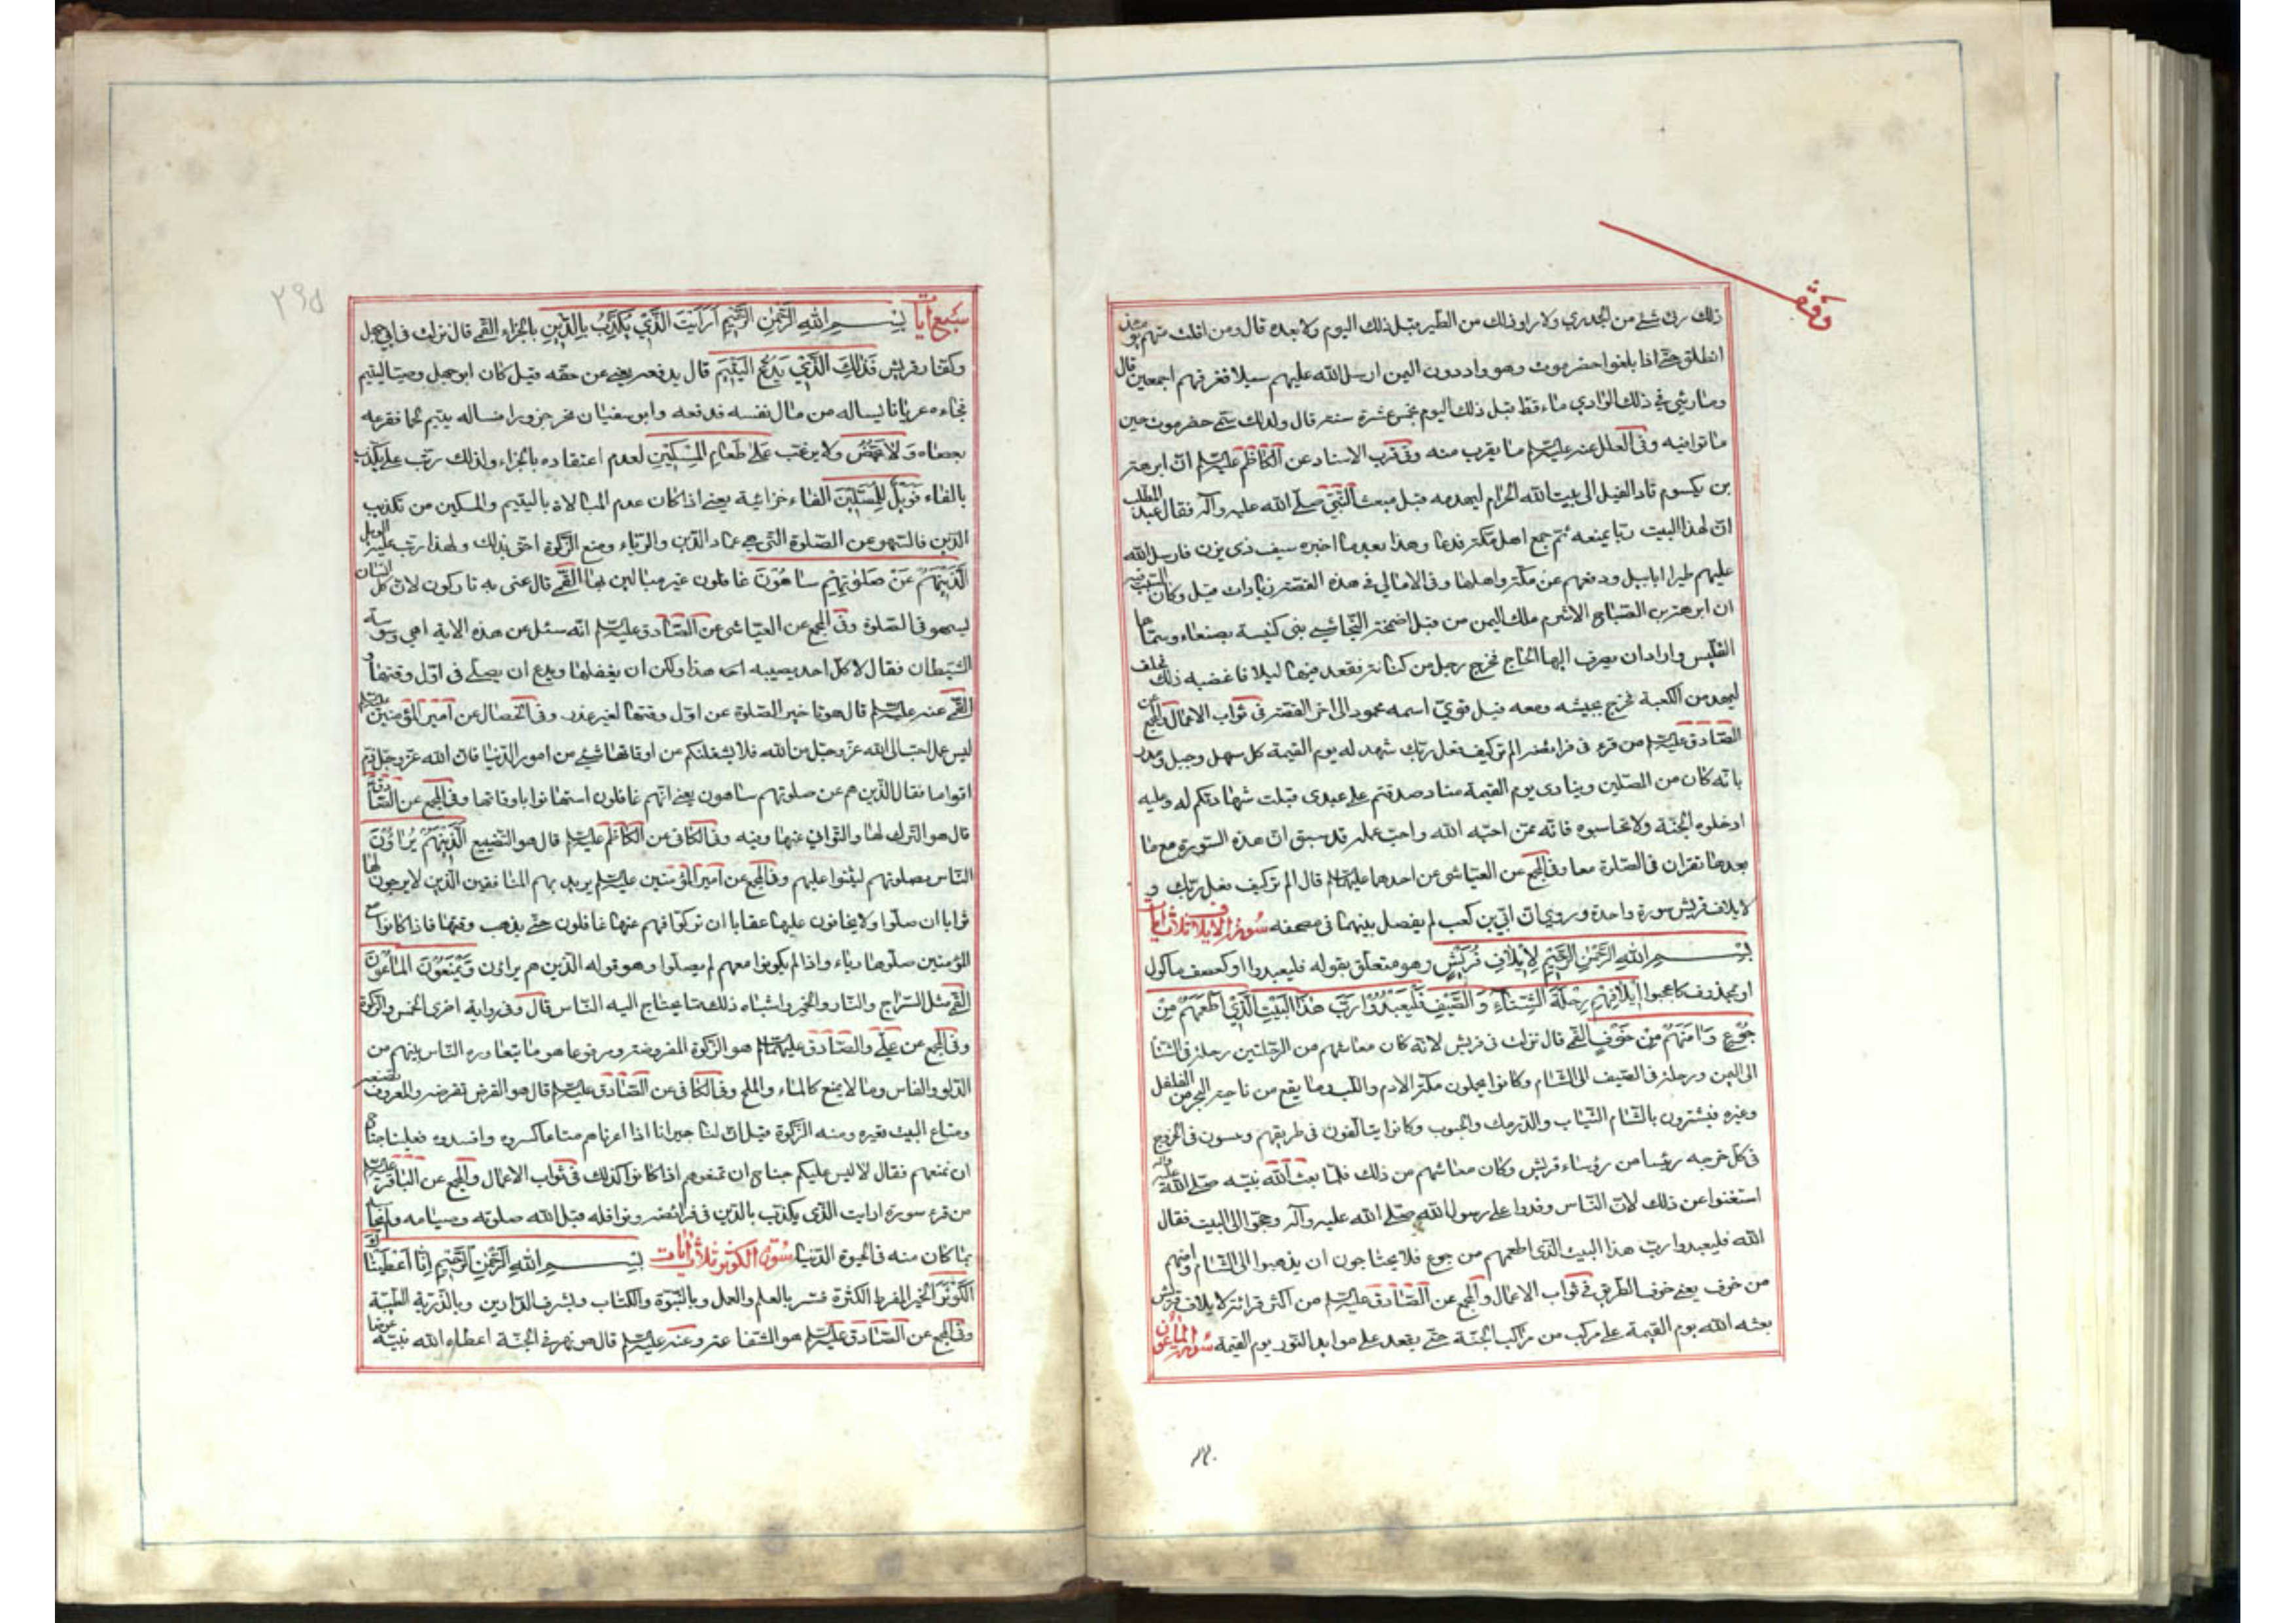 وقف
ذلك رئي شئ من الجدري ولا راو ذلك من الطير قبل ذلك اليوم ولا بعده قال ومن افلت منهم يومئذ
انطلق حتى اذا بلغوا حضرموت وهو واد دون اليمن ارسل الله عليهم سيلا فغرقهم اجمعين قال
وما رئي في ذلك الوادي ماء قط قبل ذلك اليوم بخمس عشرة سنة قال ولذلك سمي حضرموت حين
ماتوا فيه وفي العلل عنه عليه السلام ما يقرب منه وفي قرب الاسناد عن الكاظم عليه السلام ان ابرهة
بن يكسوم قاد الفيل الى بيت الله الحرام ليهدمه قبل مبعث النبي صلى الله عليه وآله فقال عبد المطلب
ان لهذا البيت ربا يمنعه ثم جمع اهل مكة فدعا وهذا بعد ما اخبره سيف ذي يزن فارسل الله
عليهم طيرا ابابيل ودفعهم عن مكة واهلها وفي الامالي في هذه القصة زيادات قيل وكان السبب فيه
ان ابرهة بن الصباح الاشرم ملك اليمن من قبل اضخمة النجاشي بنى كنيسة بصنعاء وسماها
القليس واراد ان يصرف اليها الحاج فخرج رجل من كنانة فقعد فيها ليلا فاغضبه ذلك فحلف
ليهدمن الكعبة فخرج بجيشه ومعه فيل قوي اسمه محمود الى اخر القصة في ثواب الاعمال والمجمع عن
الصادق عليه السلام من قرء في فرائضه الم تر كيف فعل ربك شهد له يوم القيمة كل سهل وجبل ومدر
بانه كان من المصلين وينادى يوم القيمة مناد صدقتم على عبدى قبلت شهادتكم له وعليه
ادخلوه الجنة ولا تحاسبوه فانه ممن احبه الله واحب عمله قد سبق ان هذه السورة مع ما
بعدها تقران في الصلوة معا وفي المجمع عن العياشي عن احدهما عليهما السلام قال الم تر كيف فعل ربك و
لايلاف قريش سورة واحدة وروي ان ابي بن كعب لم يفصل بينهما في مصحفه سورة الايلاف ثلاث ايات
بسم الله الرحمن الرحيم لِإيلافِ قُرَيْشٍ وهو متعلق بقوله فليعبدوا او كعصف ماكول
او محذوف كاعجبوا إيلافِهِمْ رِحْلَةَ الشِّتاءِ وَ الصَّيْفِ فَلْيَعْبُدُوا رَبَّ هذَا الْبَيْتِ الَّذي أَطْعَمَهُمْ مِنْ
جُوعٍ وَآمَنَهُمْ مِنْ خَوْفٍ القمي قال نزلت في قريش لانه كان معاشهم من الرحلتين رحلة في الشتا
الى اليمن ورحلة في الصيف الى الشام وكانوا يحملون مكة الادم واللب وما يقع من ناحية البحر من الفلفل
وغيره فيشترون بالشام الثياب والدرمك والحبوب وكانوا يتالفون في طريقهم ويسون في الخروج
في كل خرجه رئيسا من رؤساء قريش وكان معاشهم من ذلك فلما بعث الله نبيه صلى الله عليه وآله
استغنوا عن ذلك لان الناس وفدوا على رسول الله صلى الله عليه وآله وحجوا الى البيت فقال
الله فليعبدوا رب هذا البيت الذي اطعمهم من جوع فلا يحتاجون ان يذهبوا الى الشام وامنهم
من خوف يعني خوف الطريق في ثواب الاعمال والمجمع عن الصادق عليه السلام من اكثر قرائة لايلاف قريش
بعثه الله يوم القيمة على مركب من مراكب الجنة حتى يقعد على موايد النور يوم القيمة سورة الماعون
سبع ايات بسم الله الرحمن الرحيم أَرَأَيْتَ الَّذي يُكَذِّبُ بِالدِّينِ بالجزاء القمي قال نزلت في ابي جهل
وكفار قريش فَذلِكَ الَّذي يَدُعُّ الْيَتيمَ قال يدفعه يعني عن حقه قيل كان ابو جهل وصيا ليتيم
فجاءه عريانا يساله من مال نفسه فدفعه وابو سفيان نحر جزورا فساله يتيم لحما فقرعه
بعصاه وَ لا يَحُضُّ ولا يرغب عَلى طَعامِ الْمِسْكينِ لعدم اعتقاده بالجزاء ولذلك رتب على يكذب
بالفاء فَوَيْلٌ لِلْمُصَلِّينَ الفاء جزائية يعني اذا كان عدم المبالاة باليتيم والمسكين من تكذيب
الدين فالسهو عن الصلوة التي هي عماد الدين والرياء ومنع الزكوة احق بذلك ولهذا رتب عليها الويل
الَّذينَ هُمْ عَنْ صَلاتِهِمْ ساهُونَ غافلون غير مبالين بها القمي قال عنى به تاركون لان كل انسان
يسهو في الصلوة وفي المجمع عن العياشي عن الصادق عليه السلام انه سئل عن هذه الاية اهي وسوسة
الشيطان فقال لا كل احد يصيبه هذا ولكن ان يغفلها ويدع ان يصلي في اول وقتها و
القمي عنه عليه السلام قال هو تاخير الصلوة عن اول وقتها لغير عذر وفي الخصال عن امير المؤمنين عليه السلام
ليس عمل احب الى الله عز وجل من الله فلا يشغلنكم من اوقاتها شئ من امور الدنيا فان الله عز وجل ذم
اقواما فقال الذين هم عن صلوتهم ساهون يعني انهم غافلون استهانوا باوقاتها وفي المجمع عن الصادق
قال هو الترك لها والتواني عنها وفيه وفي الكافي عن الكاظم عليه السلام قال هو التضييع الَّذينَ هُمْ يُراؤُنَ
الناس بصلوتهم ليثنوا عليهم وفي المجمع عن امير المؤمنين عليه السلام يريد بهم المنافقين الذين لا يرجون لها
ثوابا ان صلوا ولا يخافون عليها عقابا ان تركوا فهم عنها غافلون حتى يذهب وقتها فاذا كانوا مع
المؤمنين صلوها رياء واذا لم يكونوا معهم لم يصلوا وهو قوله الذين هم يراؤن وَيَمْنَعُونَ الْماعُونَ
القمي مثل السراج والنار والخمير واشباه ذلك مما يحتاج اليه الناس قال وفي رواية اخرى الخمس والزكوة
وفي المجمع عن علي والصادق عليهما السلام هو الزكوة المفروضة ومرفوعا هو ما يتعاوره الناس بينهم من
الدلو والفاس وما لا يمنع كالماء والملح وفي الكافي عن الصادق عليه السلام قال هو القرض تقرضه والمعروف تصنعه
ومتاع البيت تعيره ومنه الزكوة قيل ان لنا جيرانا اذا اعرناهم متاعا كسروه وافسدوه فعلينا جناح
ان نمنعهم فقال لا ليس عليكم جناح ان تمنعوهم اذا كانوا كذلك في ثواب الاعمال والمجمع عن الباقر عليه السلام
من قرء سورة ارايت الذي يكذب بالدين في فرائضه ونوافله قبل الله صلوته وصيامه ولم يحاسبه
بما كان منه في الحيوة الدنيا سورة الكوثر ثلاث ايات بسم الله الرحمن الرحيم إِنَّا أَعْطَيْناكَ
الْكَوْثَرَ الخير المفرط الكثرة فسر بالعلم والعمل وبالنبوة والكتاب وبشرف الدارين وبالذرية الطيبة
وفي المجمع عن الصادق عليه السلام هو الشفاعة وعنه عليه السلام قال هو نهر في الجنة اعطاه الله نبيه عوضا